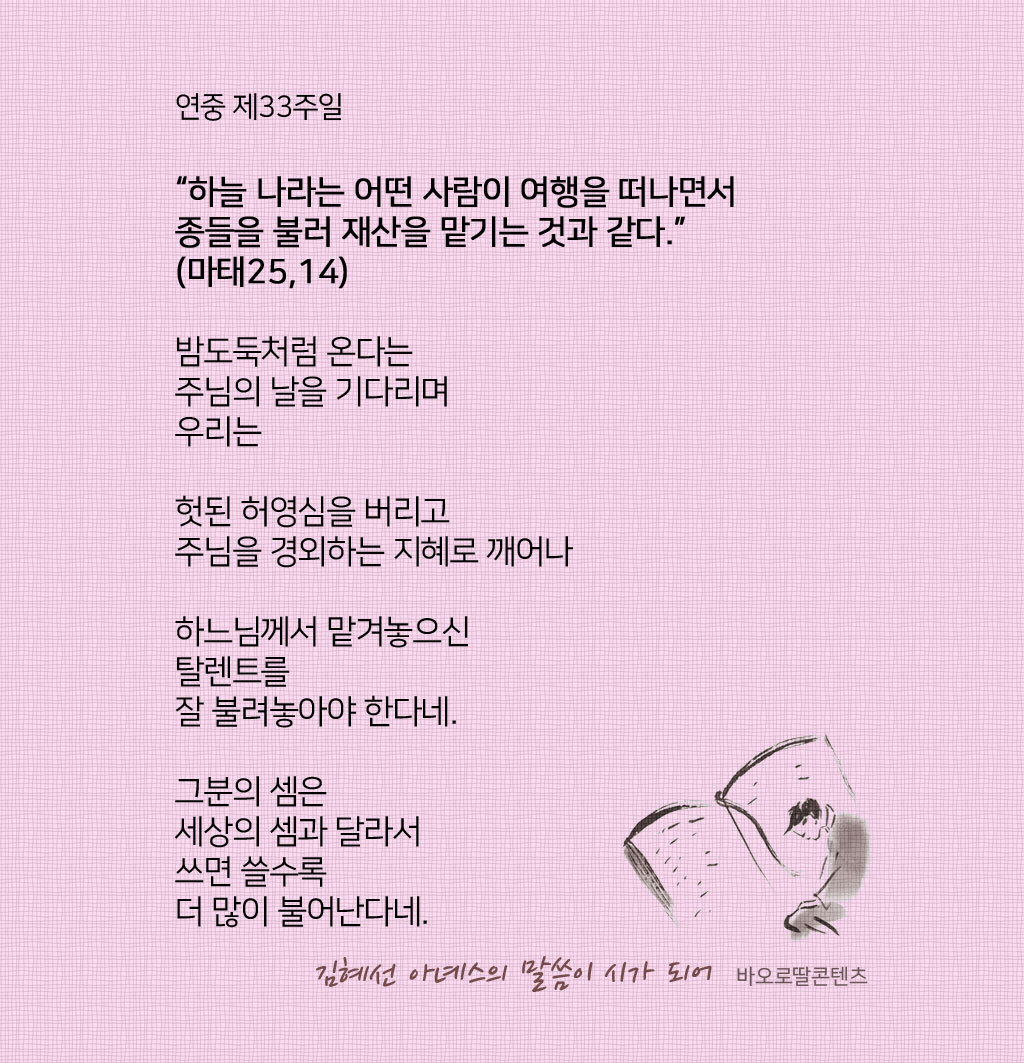 연중 제33주일
“하늘 나라는 어떤 사람이 여행을 떠나면서
종들을 불러 재산을 맡기는 것과 같다.”
(마태25,14)
밤도둑처럼 온다는
주님의 날을 기다리며
우리는
헛된 허영심을 버리고
주님을 경외하는 지혜로 깨어나
하느님께서 맡겨놓으신
탈렌트를
잘 불려놓아야 한다네.
그분의 셈은
세상의 셈과 달라서
쓰면 쓸수록
더 많이 불어난다네.
김혜선 아녜스의 말씀이 시가 되어 바오로딸콘텐츠